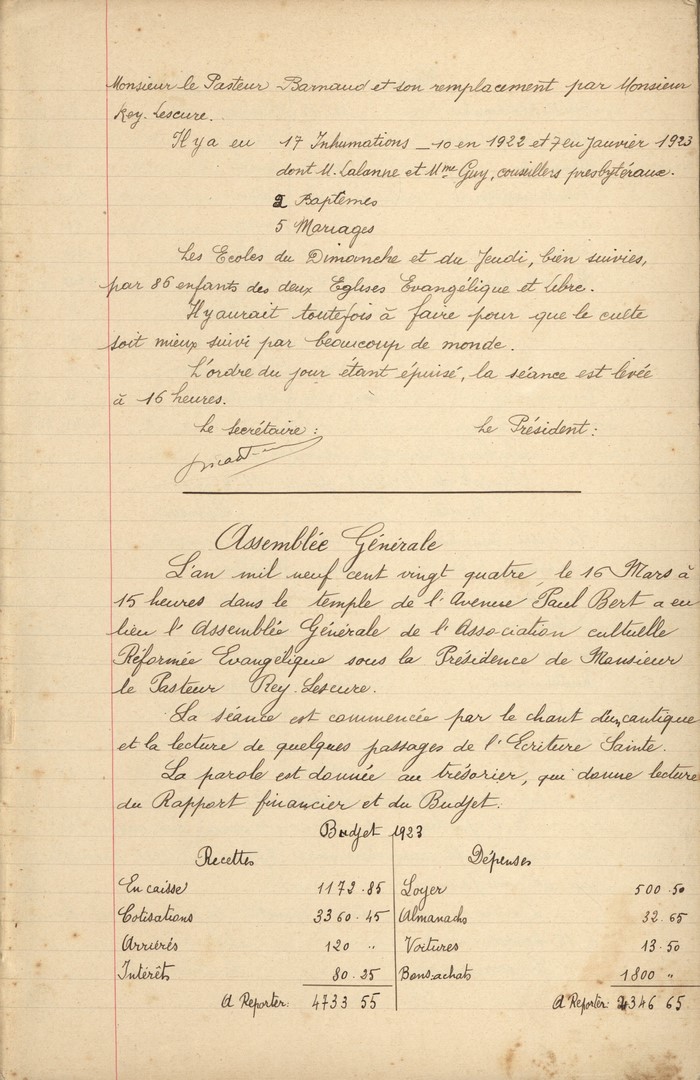 Monsieur le Pasteur Barnaud et son remplacement par Monsieur
Rey-Lescure.
Il y a eu 17 Inhumations _ 10 en 1922 et 7 en Janvier 1923
dont M. Lalanne et Mme Guy, conseillers presbytéraux.
2 Baptêmes
5 Mariages
Les Ecoles du Dimanche et du Jeudi, bien suivies,
par 86 enfants des deux Eglises Evangélique et Libre.
Il y aurait toutefois à faire pour que le culte
soit mieux suivi par beaucoup de monde.
L'ordre du jour étant épuisé, la séance est levée
à 16 heures.
Le Secrétaire : Le Président :
Assemblée Générale
L'an mil neuf cent vingt quatre, le 16 Mars à
15 heures dans le temple de l'Avenue Paul Bert a eu
lieu l'Assemblée Générale de l'Association cultuelle
Réformée Evangélique sous la Présidence de Monsieur
le Pasteur Rey-Lescure.
La séance est commencée par le chant d'un cantique
et la lecture de quelques passages de l'Ecriture Sainte.
La parole est donnée au trésorier, qui donne lecture
du Rapport financier et du Budjet :
Budjet 1923
Recettes Dépenses
En caisse 1173.85 Loyer 500.50
Cotisations 3360.45 Almanachs 32.65
Arriérés 120 " Voitures 13.50
Intérêts 80.25 Bons-achats 1800 "
A Reporter: 4733 55 A Reporter: 2346 65